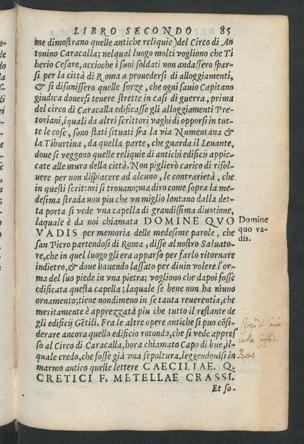 LIBRO SECONDO 85
me dimostrano quelle antiche reliquie) del Circo di An
tonino Caracalla; nel qual luogo molti vogliono che Ti
berio Cesare, accioche i suoi soldati non andassero spar-
si per la città di Roma a prouedersi di alloggiamenti,
& si disunissero quelle forze, che ogni sauio Capitano
giudica douersi tenere strette in casi di guerra, prima
del circo di Caracalla edificasse gli alloggiamenti Pre-
toriani, i quali da altri scrittori vaghi di opporsi in tut-
te le cose, sono stati situati fra la via Numentana &
la Tiburtina, da quella parte, che guarda il Leuante,
doue si veggono quelle reliquie di antichi edificij appic-
cate alle mura della città. Non pigliarò carico di risol-
uere per non dispiacer ad alcuno, le contrarietà, che
in questi scrittori si trouano; ma diro come sopra la me-
desima strada non piu che vn miglio lontano dalla det-
ta porta si vede vna capella di grandissima diuotione,
laquale è da noi chiamata DOMINE QVO
VADIS per memoria delle medesime parole, che
san Piero partendosi di Roma, disse al nostro Saluato-
re, che in quel luogo gli era apparso per farlo ritornare
indietro, & doue hauendo lassato per diuin volere l'or-
ma del suo piede in vna pietra; vogliono che dapoi fosse
edificata questa capella; laquale se bene non ha niuno
ornamento; tiene nondimeno in se tanta reuerentia, che
meritamente è apprezzata piu che tutto il restante de
gli edificij Gētili. Fra le altre opere antiche si puo cōsi-
derare ancora quello edificio rotondo, che si vede appres-
so al Circo di Caracalla, hora chiamato Capo di bue, il-
quale credo, che fosse già vna sepoltura, leggendouisi in
marmo antico queste lettere CAECILIAE. Q.
CRETICI F. METELLAE CRASSI.
Et so-
Domine
quo va-
dis.